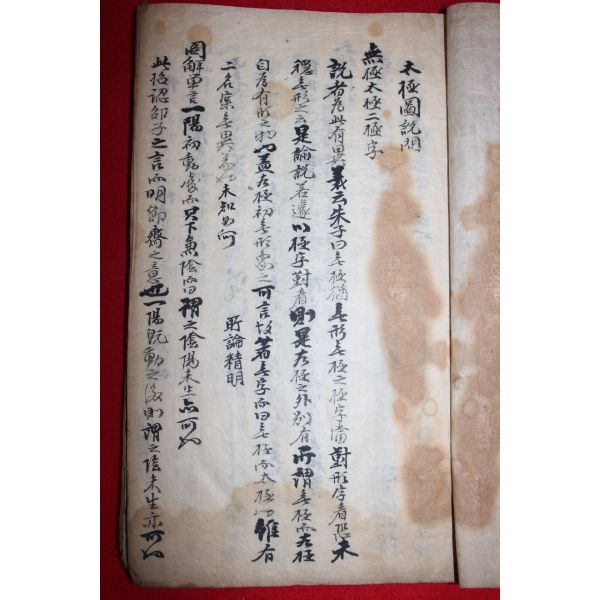 太極圖說問
無極太極二極字
說者爲此有異義云朱子曰無極猶無形無極之極字當對形字看恐未
穩無形之云是論說若遽以極字對看則是太極之外別有所謂無極而太極
自爲有形之物也盖太極初無形象之可言故著無字而曰無極而太極也雖有
二名案無異義也未知如何 所論精明
圖解單言一陽初動處而其下兼陰而曰謂之陰陽未生亦可也
此後認邵子之言而明節齋之意也一陽旣動之後則謂之陰未生亦可也